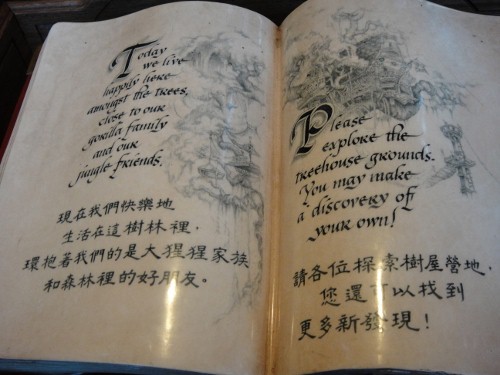 Today
we live
happily here
amongst the trees,
close to our
gorilla family
and our
jungle friends.
現在我們快樂地
生活在這樹林裡，
環抱著我們的是大猩猩家族
和森林裡的好朋友。
Please
explore the
treehouse grounds.
You may make
a discovery of
your own!
請各位探索樹屋營地，
您還可以找到
更多新發現！